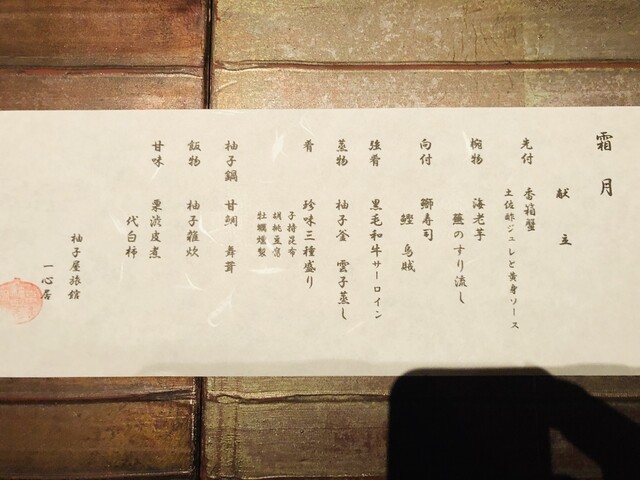 霜月
献立
先付 香箱蟹
土佐酢ジュレと黄身ソース
椀物 海老芋
蕪のすり流し
向付 鰤寿司
鰹 烏賊
強肴 黒毛和牛サーロイン
蒸物 柚子釜 雲子蒸し
肴 珍味三種盛り
子持昆布
胡桃豆腐
牡蠣燻製
柚子鍋 甘鯛 舞茸
飯物 柚子雑炊
甘味 栗渋皮煮
代白柿
柚子屋旅館
一心居